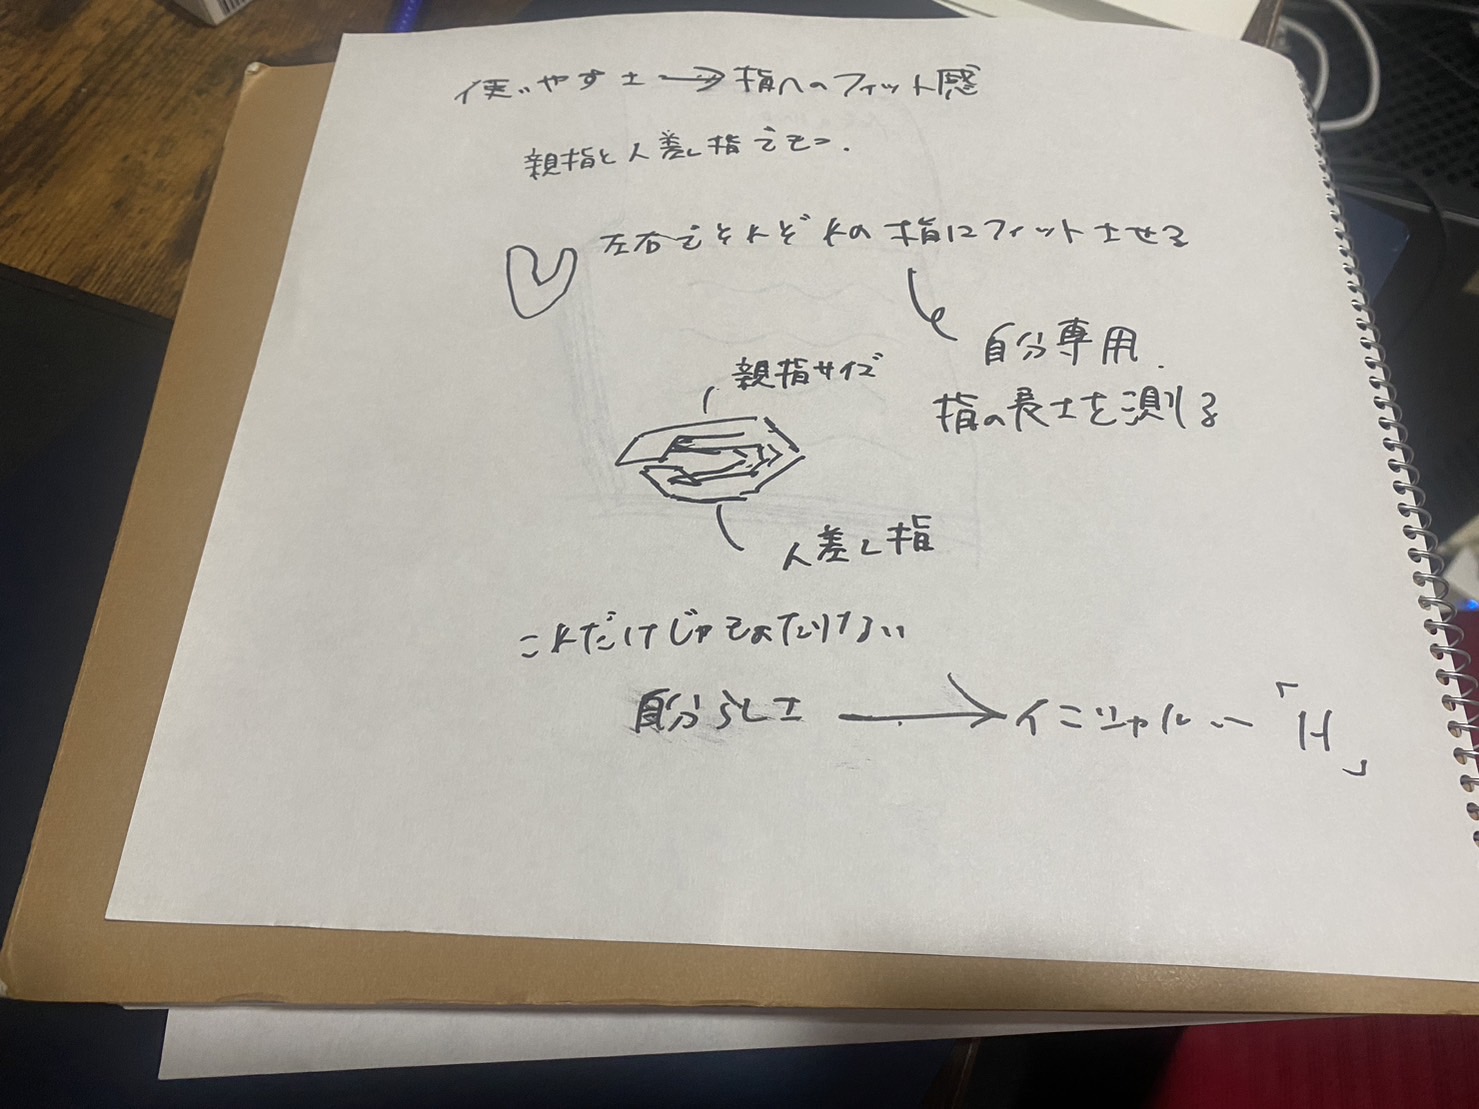 使いやすさ→指へのフィット感
親指と人差し指でもつ.
左右でそれぞれの指にフィットさせる
自分専用.
指の長さを測る
親指サイズ
人差し指
これだけじゃものたりない
自分らしさ → イニシャル 「H」